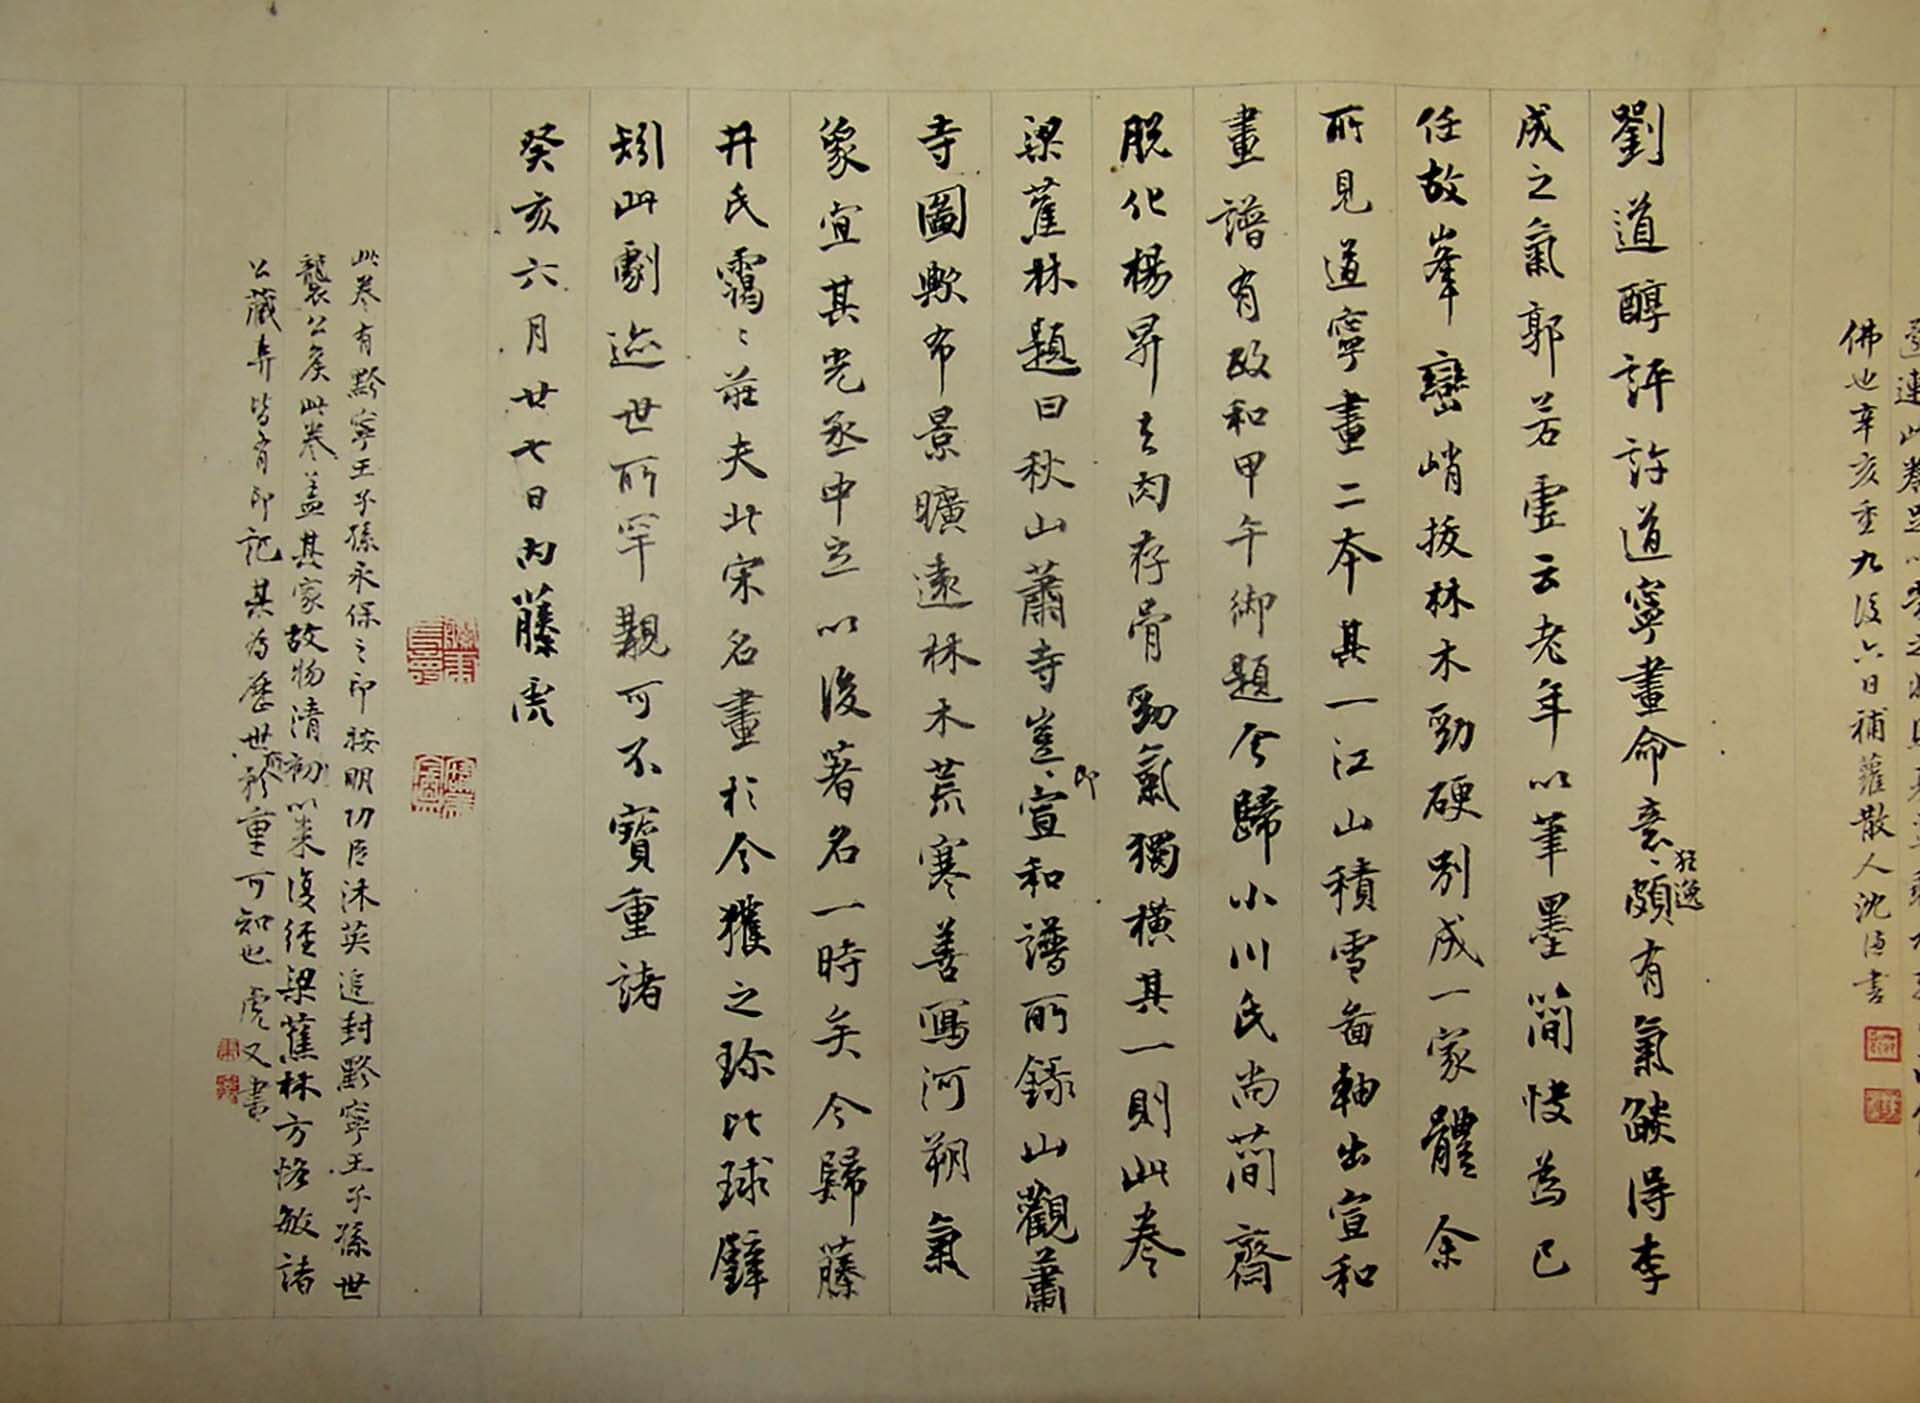 佛也辛亥重九後六日補蘿散人沈
劉道醇評許道寧畫命意狂逸頗有氣燄得李
成之氣郭若虛云老年以筆墨簡快為己
任故峯巒峭拔林木勁硬別成一家體余
所見道寧畫二本其一江山積雪畵軸出宣和
畫譜有政和甲午御題今歸小川氏尚簡齋
脱化楊昇去肉存骨勁氣獨橫其一則此卷
梁蕉林題曰秋山蕭寺豈即宣和譜所錄山觀蕭
寺圖歟布景曠遠林木荒寒善寫河朔氣
象宜其光丞中立以後著名一時矣今歸藤
井氏靄靄莊夫此宋名畫於今獲之珎比球璧
矧此劇迹世所罕覯可不寶重諸
癸亥六月廿七日內藤虎
此卷有黔寧王子孫永保之印按明功臣沐英追封黔寧王子孫世
襲公矦此卷蓋其家故物清初以來復經梁蕉林方恪敏諸
公藏弆皆有印記其為歷世所珍重可知也 虎又書